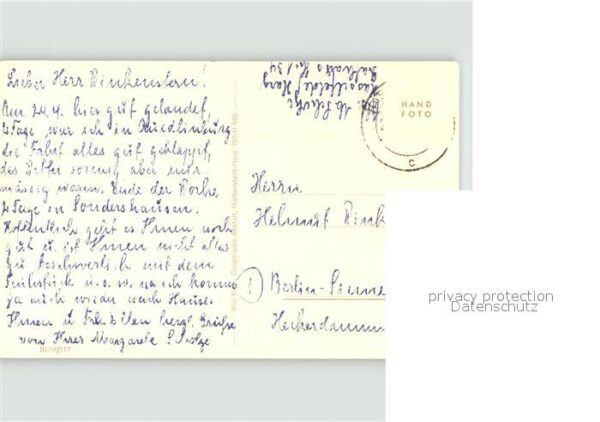 Lieber Herr Winkenstern!
Am 24.4. hier gut gelandet,
2 Tage war ich in Quedlinburg
die Fahrt alles gut geklappt,
das Wetter sonnig aber nur
mässig warm. Ende der Woche
2 Tage in Sondershausen.
Hoffentlich geht es Ihnen noch
gut u. ist Ihnen nicht alles
zu beschwerlich mit dem
Frühstück u.s.w. nach komme
ja auch wieder nach Hause.
Ihnen u. Frl. herzl. Grüße
von Ihrer Margarete
III/18/117
Halberstadt-Harz
HAND
FOTO
c
Herrn
Helmut Wink
1 Berlin-Sieme
Heckerdamm
privacy protection
Datenschutz